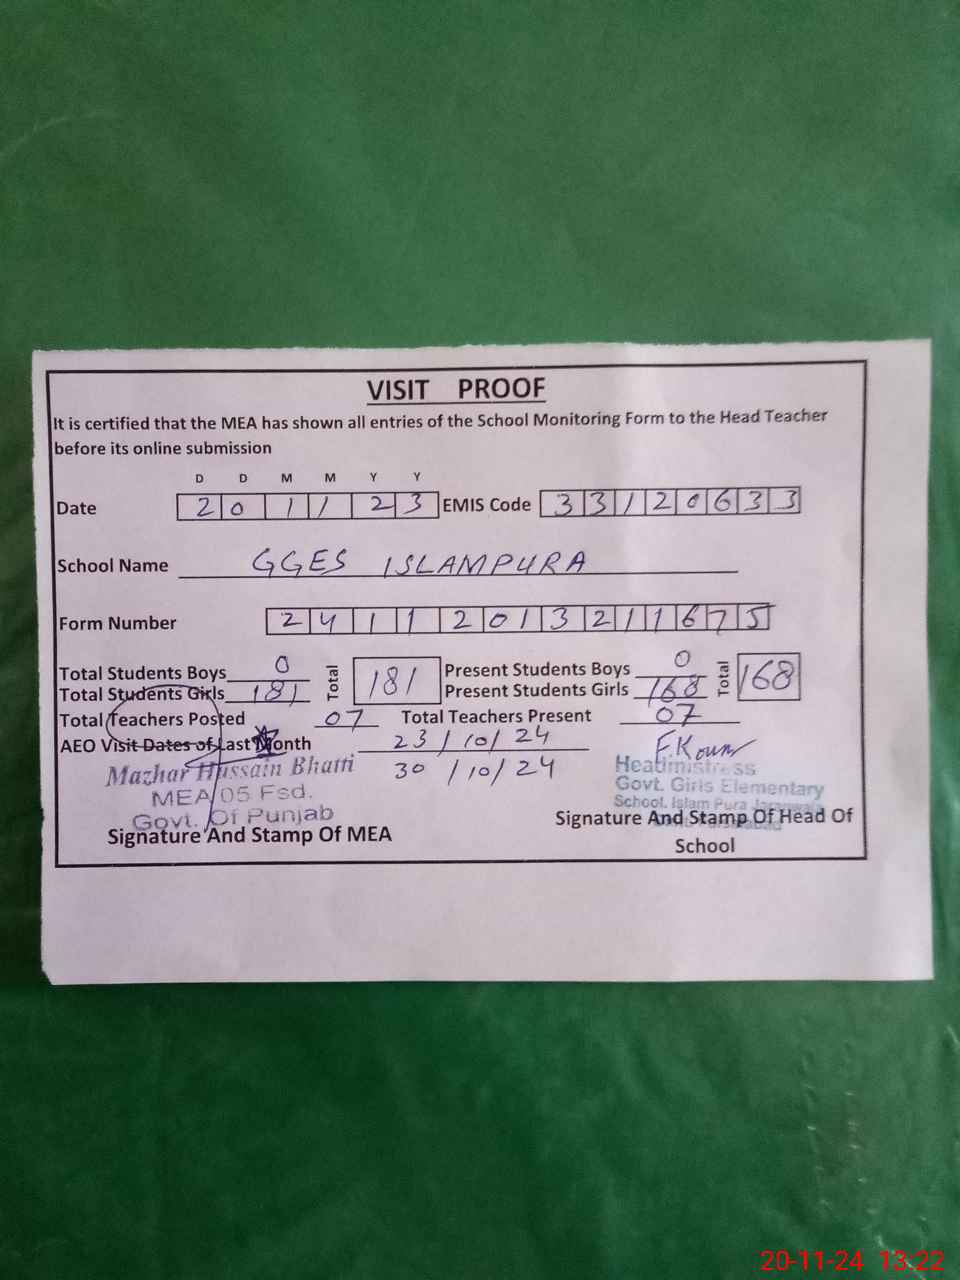 VISIT PROOF
It is certified that the MEA has shown all entries of the School Monitoring Form to the Head Teacher
before its online submission
D D M M Y Y
Date 2 0 1 1 2 3 EMIS Code 3 3 1 2 0 6 3 3
School Name GGES ISLAMPURA
Form Number 2 4 1 1 2 0 1 3 2 1 1 6 7 5
Total Students Boys 0 Total 181 Present Students Boys 0 Total 168
Total Students Girls 181 Present Students Girls 168
Total Teachers Posted 07 Total Teachers Present 07
AEO Visit Dates of Last Month 23/10/24
30/10/24
Mazhar Hussain Bhatti
MEA 05 Fsd.
Govt. Of Punjab
Signature And Stamp Of MEA
Headmistress
Govt. Girls Elementary
School. Islam Pura Jaranwala
Signature And Stamp Of Head Of
School
20-11-24 13:22